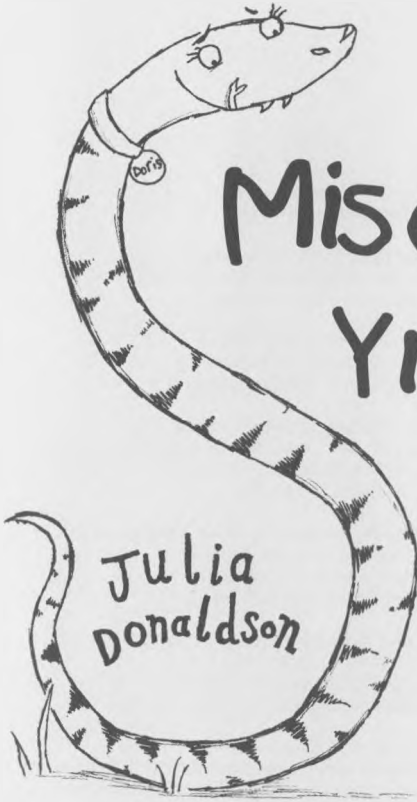 Doris
Mis
Yr
Julia
Donaldson